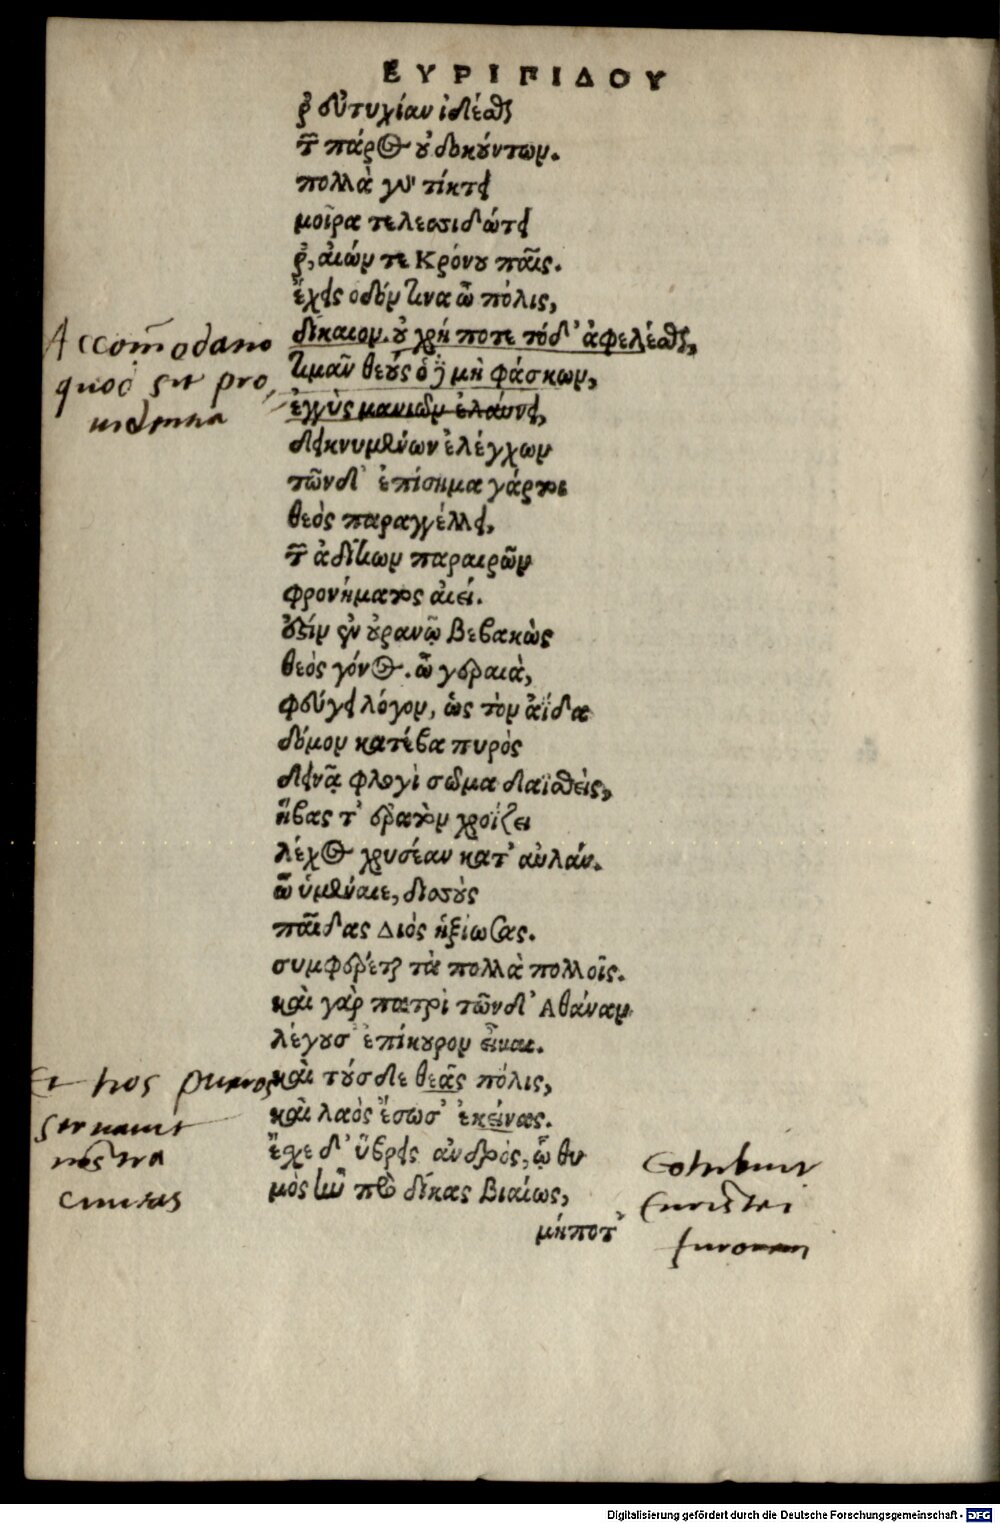 ΕΥΡΙΠΙΔΟΥ
δ' εὐτυχίαν ἰδέσθαι
τῶν πάρος οὐ δοκούντων.
πολλὰ γὰρ τίκτει
μοῖρα τελεσσιδώτει
ρ', αἰών τε Κρόνου παῖς.
ἔχεις ὁδόν τινα ὦ πόλις,
δίκαιον. οὐ χρή ποτε τόδ' ἀφελέσθαι,
Accommodatio
τιμᾶν θεούς ὁ δὲ μὴ φάσκων,
quod sit pro
ἐγγὺς μανιῶν ἐλαύνει,
uidentia
δεικνυμένων ἐλέγχων
τῶνδ' ἐπίσημα γάρ τοι
θεὸς παραγγέλλει,
τῶν ἀδίκων παραιρῶν
φρονήματος αἰεί.
οὐξίν ἐν οὐρανῷ βεβακὼς
θεὸς γόνος. ὦ γεραιὰ,
φεύγει λόγον, ὡς τὸν ἀΐδα
δόμον κατέβα πυρὸς
δεινᾷ φλογὶ σῶμα δαϊσθεὶς,
ἥβας τ' ἐρατὸν χροΐζει
λέχος χρυσέαν κατ' αὐλάν.
ὦ ὑμέναιε, δισσοὺς
παῖδας Διὸς ἠξίωσας.
συμφέρεται τὰ πολλὰ πολλοῖς.
καὶ γὰρ πατρὶ τῶνδ' Ἀθάναν
λέγουσ' ἐπίκουρον εἶναι.
Et hos pueros
καὶ τούσδε θεᾶς πόλις,
seruauit
καὶ λαὸς ἔσωσ' ἐκείνας.
nostra
ἔσχε δ' ὕβρεις ἀνδρὸς, ᾧ θυ
Cohibuit
ciuitas
μὸς ἦν πρὸ δίκας βιαίως,
Euristei
μήποτ'
furorem
Digitalisierung gefördert durch die Deutsche Forschungsgemeinschaft - DFG